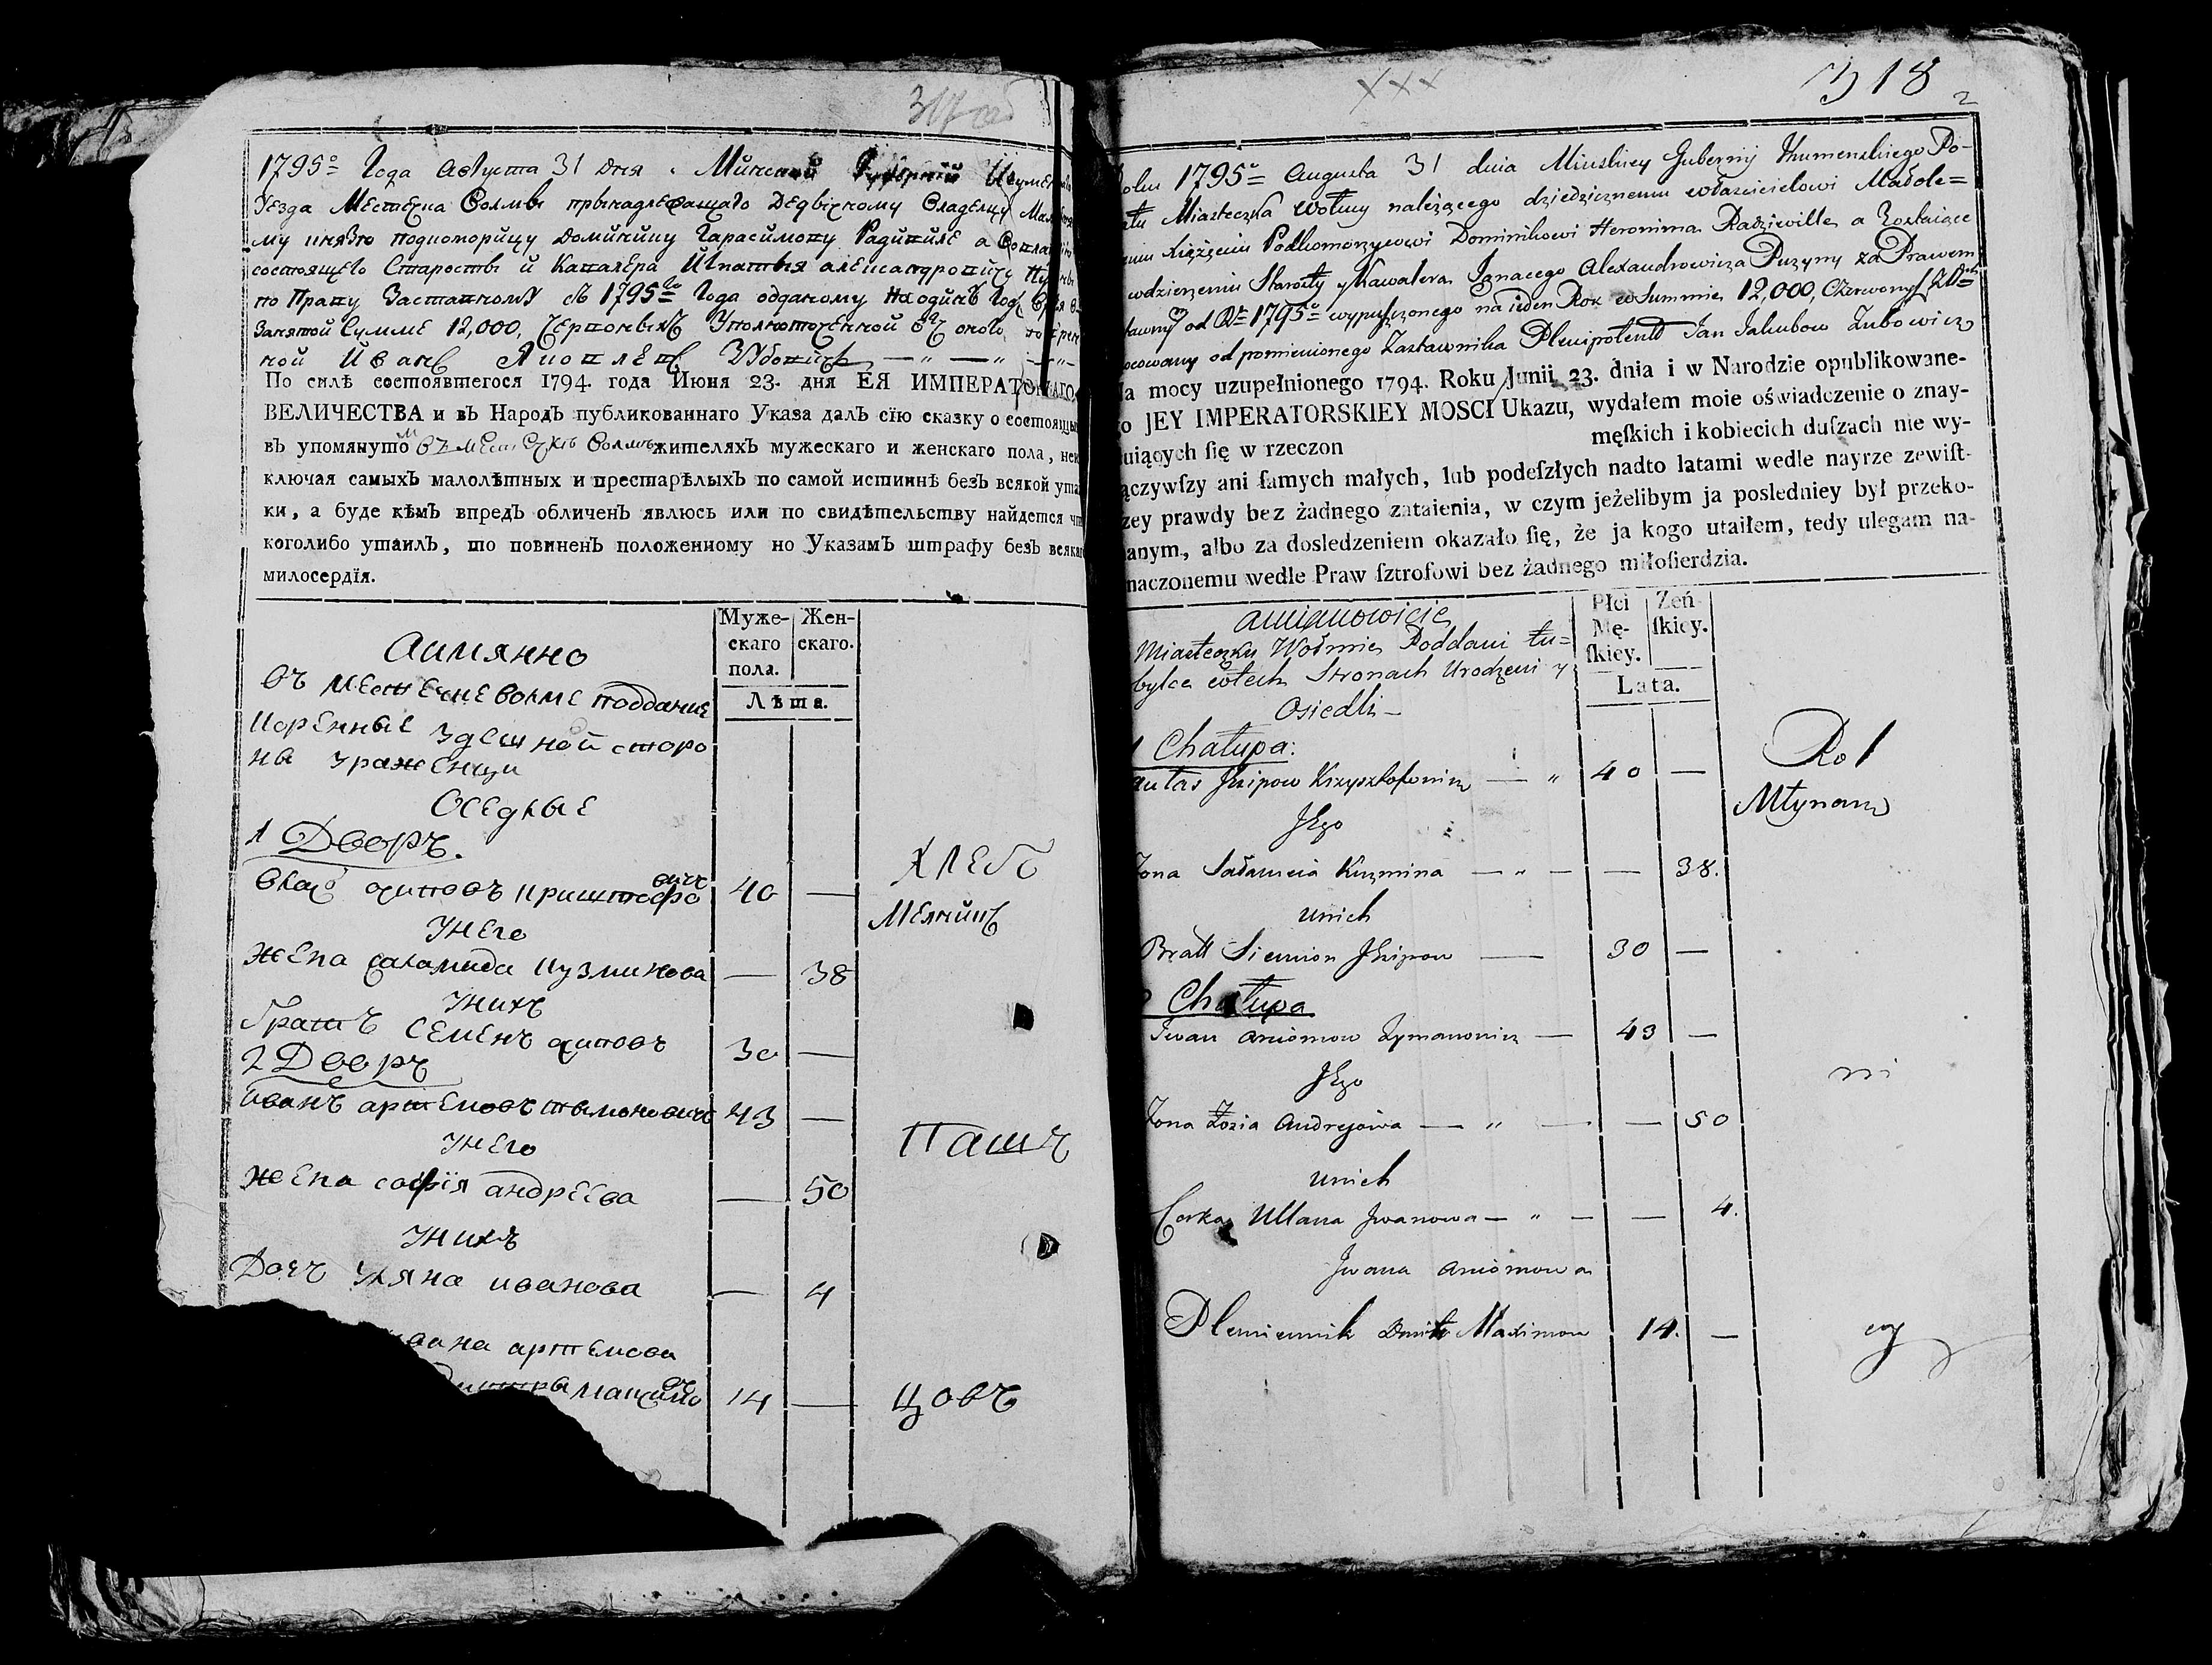 317 об
1795º Года Августа 31 дня Минской Губерний
Уезда Местечка Волмы принадлежащаго Дедичному Владелцу
му Князю подкоморицу Доминику Гарасимову Радивиле а
состоящего Старосты й Кавалера Игнатья александровича
по Праву Заставному съ 1795го Года одданому на одинъ Годъ
Занятой Сумме 12,000, Червоныхъ Уполномоченной отъ оного
ной Иванъ Яковлевъ Зубовичъ — „ — „ — „ —
По силѣ состоявшегося 1794. года Июня 23. дня ЕЯ ИМПЕРАТОРСКАГО
ВЕЛИЧЕСТВА и въ Народъ публикованнаго Указа далъ сїю сказку о состоящихъ
въ упомянутомъ въ местечкѣ Волмѣ жителяхъ мужескаго и женскаго пола, неис
ключая самыхъ малолѣтныхъ и престарѣлыхъ по самой истиннѣ безъ всякой утай
ки, а буде кѣмъ впредъ обличенъ явлюсь или по свидѣтельству найдется что
коголибо утаилъ, то повиненъ положенному по Указамъ штрафу безъ всякаго
милосердїя.
Муже-
скаго
пола.
Жен-
скаго.
Лѣта.
Аимянно
въ местечке волме поддание
коренные здешной сторо
ны зраженци
оседлые
1 Дворъ.
осиповъ криштофовичъ 40 —
хлеб
Мелникъ
Унего
жена саламида кузминова — 38
Унихъ
братъ семенъ осиповъ 30 —
2 Дворъ
иванъ артемовъ тымоновичъ 43 —
Унего
жена софїя андреева — 50
Пашъ
Унихъ
Дочъ уляна иванова — 4
ивана артемова
максимовъ 14 —
цовъ
XXX
318
2
1795º Augusta 31 dnia Minskiey Gubernij Ihumenskiego Po-
Miasteczka Wołmy należącego dziedzicznemu właścicielowi Małole=
Xiążęciu Podkomorzycowi Dominikowi Heronima Radziwille a Zostaiące
wdzierżeniu Starosty y Kawalera Jgnacego Alexandrowicza Puzyny za Prawem
od Rº 1795º wypuszczonego na jeden Rok w Summie 12,000, Czerwonych
od pomienionego Zastawnika Plenipotent Jan Jakubow Zubowicz
a mocy uzupełnionego 1794. Roku Junii 23. dnia i w Narodzie opublikowane-
o JEY IMPERATORSKIEY MOSCI Ukazu, wydałem moie oświadczenie o znay-
uiących ſię w rzeczon męſkich i kobiecich duſzach nie wy-
ączywſzy ani ſamych małych, lub podeſzłych nadto latami wedle nayrze zewiſt-
zey prawdy bez żadnego zataienia, w czym jeżelibym ja posledniey był przeko-
anym, albo za dosledzeniem okazało ſię, że ja kogo utaiłem, tedy ulegam na-
naczonemu wedle Praw ſztrofowi bez żadnego miłoſierdzia.
Płci
Mę-
ſkiey.
Żeń-
ſkiey.
Lata.
amianowicie
Miasteczku Wołmie Poddani tu=
bylce wtech Stronach Urodzeni y
Osiedli —
1 Chałupa:
Jhipow Krzysztofowicz — „ 40 —
Rol
Młynarz
Jego
Żona Sałameia Kuzmina — „ — — 38.
unich
Bratt Siemion Jhipow — 30 —
2 Chałupa
Jwan Arciomow Tymanowicz — 43 —
ni
Jego
Żona Zozia Andrejowa — „ — — 50
unich
Corka Ullana Jwanowa — „ — — 4.
Jwana Arciomowa
Plemiennik Dmitr Maximow 14. —
cy